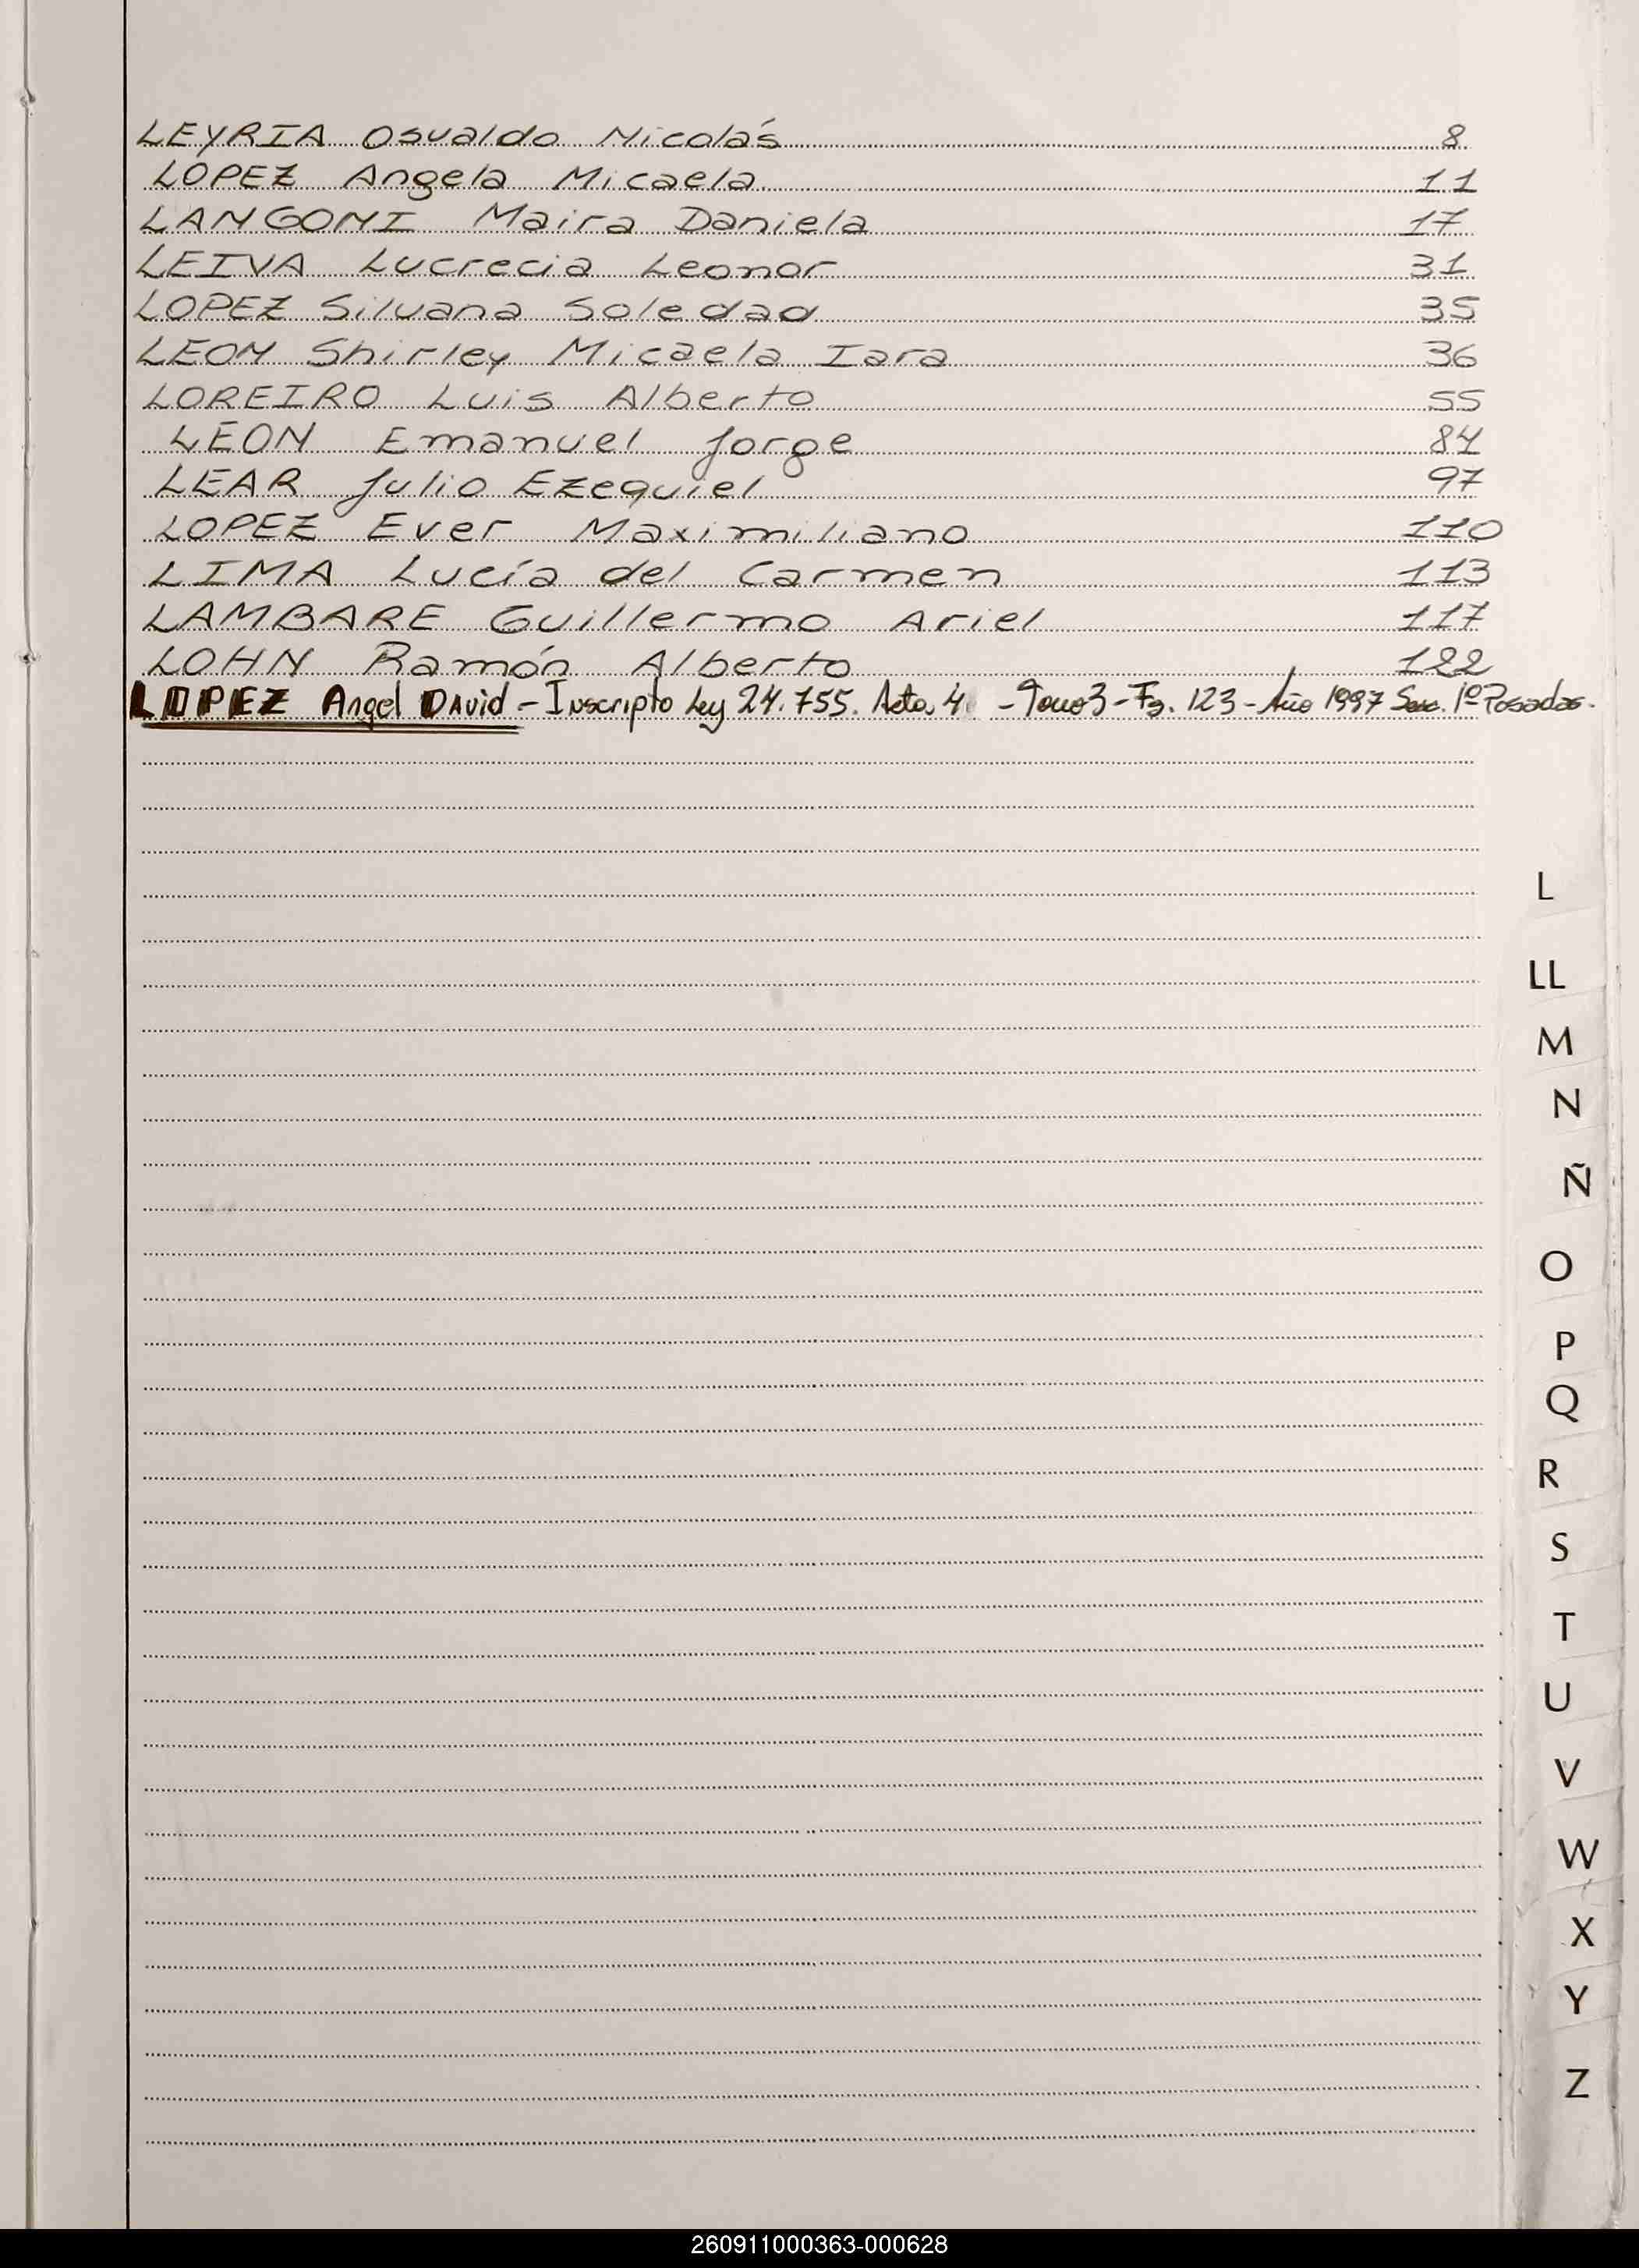 LEYRIA Osvaldo Nicolás 8
LOPEZ Angela Micaela 11
LANGONI Maira Daniela 17
LEIVA Lucrecia Leonor 31
LOPEZ Silvana Soledad 35
LEON Shirley Micaela Iara 36
LOREIRO Luis Alberto 55
LEON Emanuel Jorge 84
LEAR Julio Ezequiel 97
LOPEZ Ever Maximiliano 110
LIMA Lucía del Carmen 113
LAMBARE Guillermo Ariel 117
LOHN Ramón Alberto 122
LOPEZ Angel David - Inscripto Ley 24.755. Acta 4 - Tomo 3 - Fº. 123 - Año 1997 Secc. 1º Posadas.
L
LL
M
N
Ñ
O
P
Q
R
S
T
U
V
W
X
Y
Z
260911000363-000628